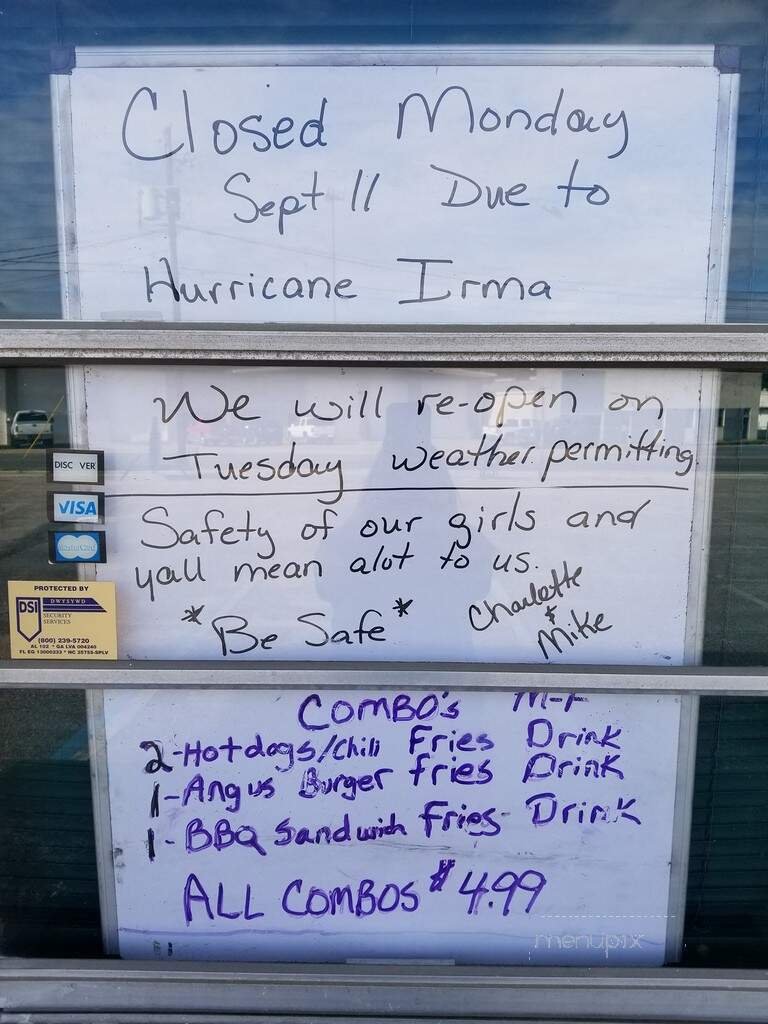 Closed Monday
Sept 11 Due to
Hurricane Irma
We will re-open on
Tuesday weather permitting
Safety of our girls and
yall mean alot to us.
*Be Safe*
Charlette
& Mike
DISC VER
VISA
MasterCard
PROTECTED BY
DSI
DWYSYWD
SECURITY
SERVICES
(800) 239-5720
AL 102 * GA LVA 004240
FL EG 13000233 * NC 25755-SPLV
COMBO'S M-F
2-Hotdogs/Chili Fries Drink
1-Angus Burger fries Drink
1-BBQ Sandwich Fries Drink
ALL COMBOS $4.99
menupix